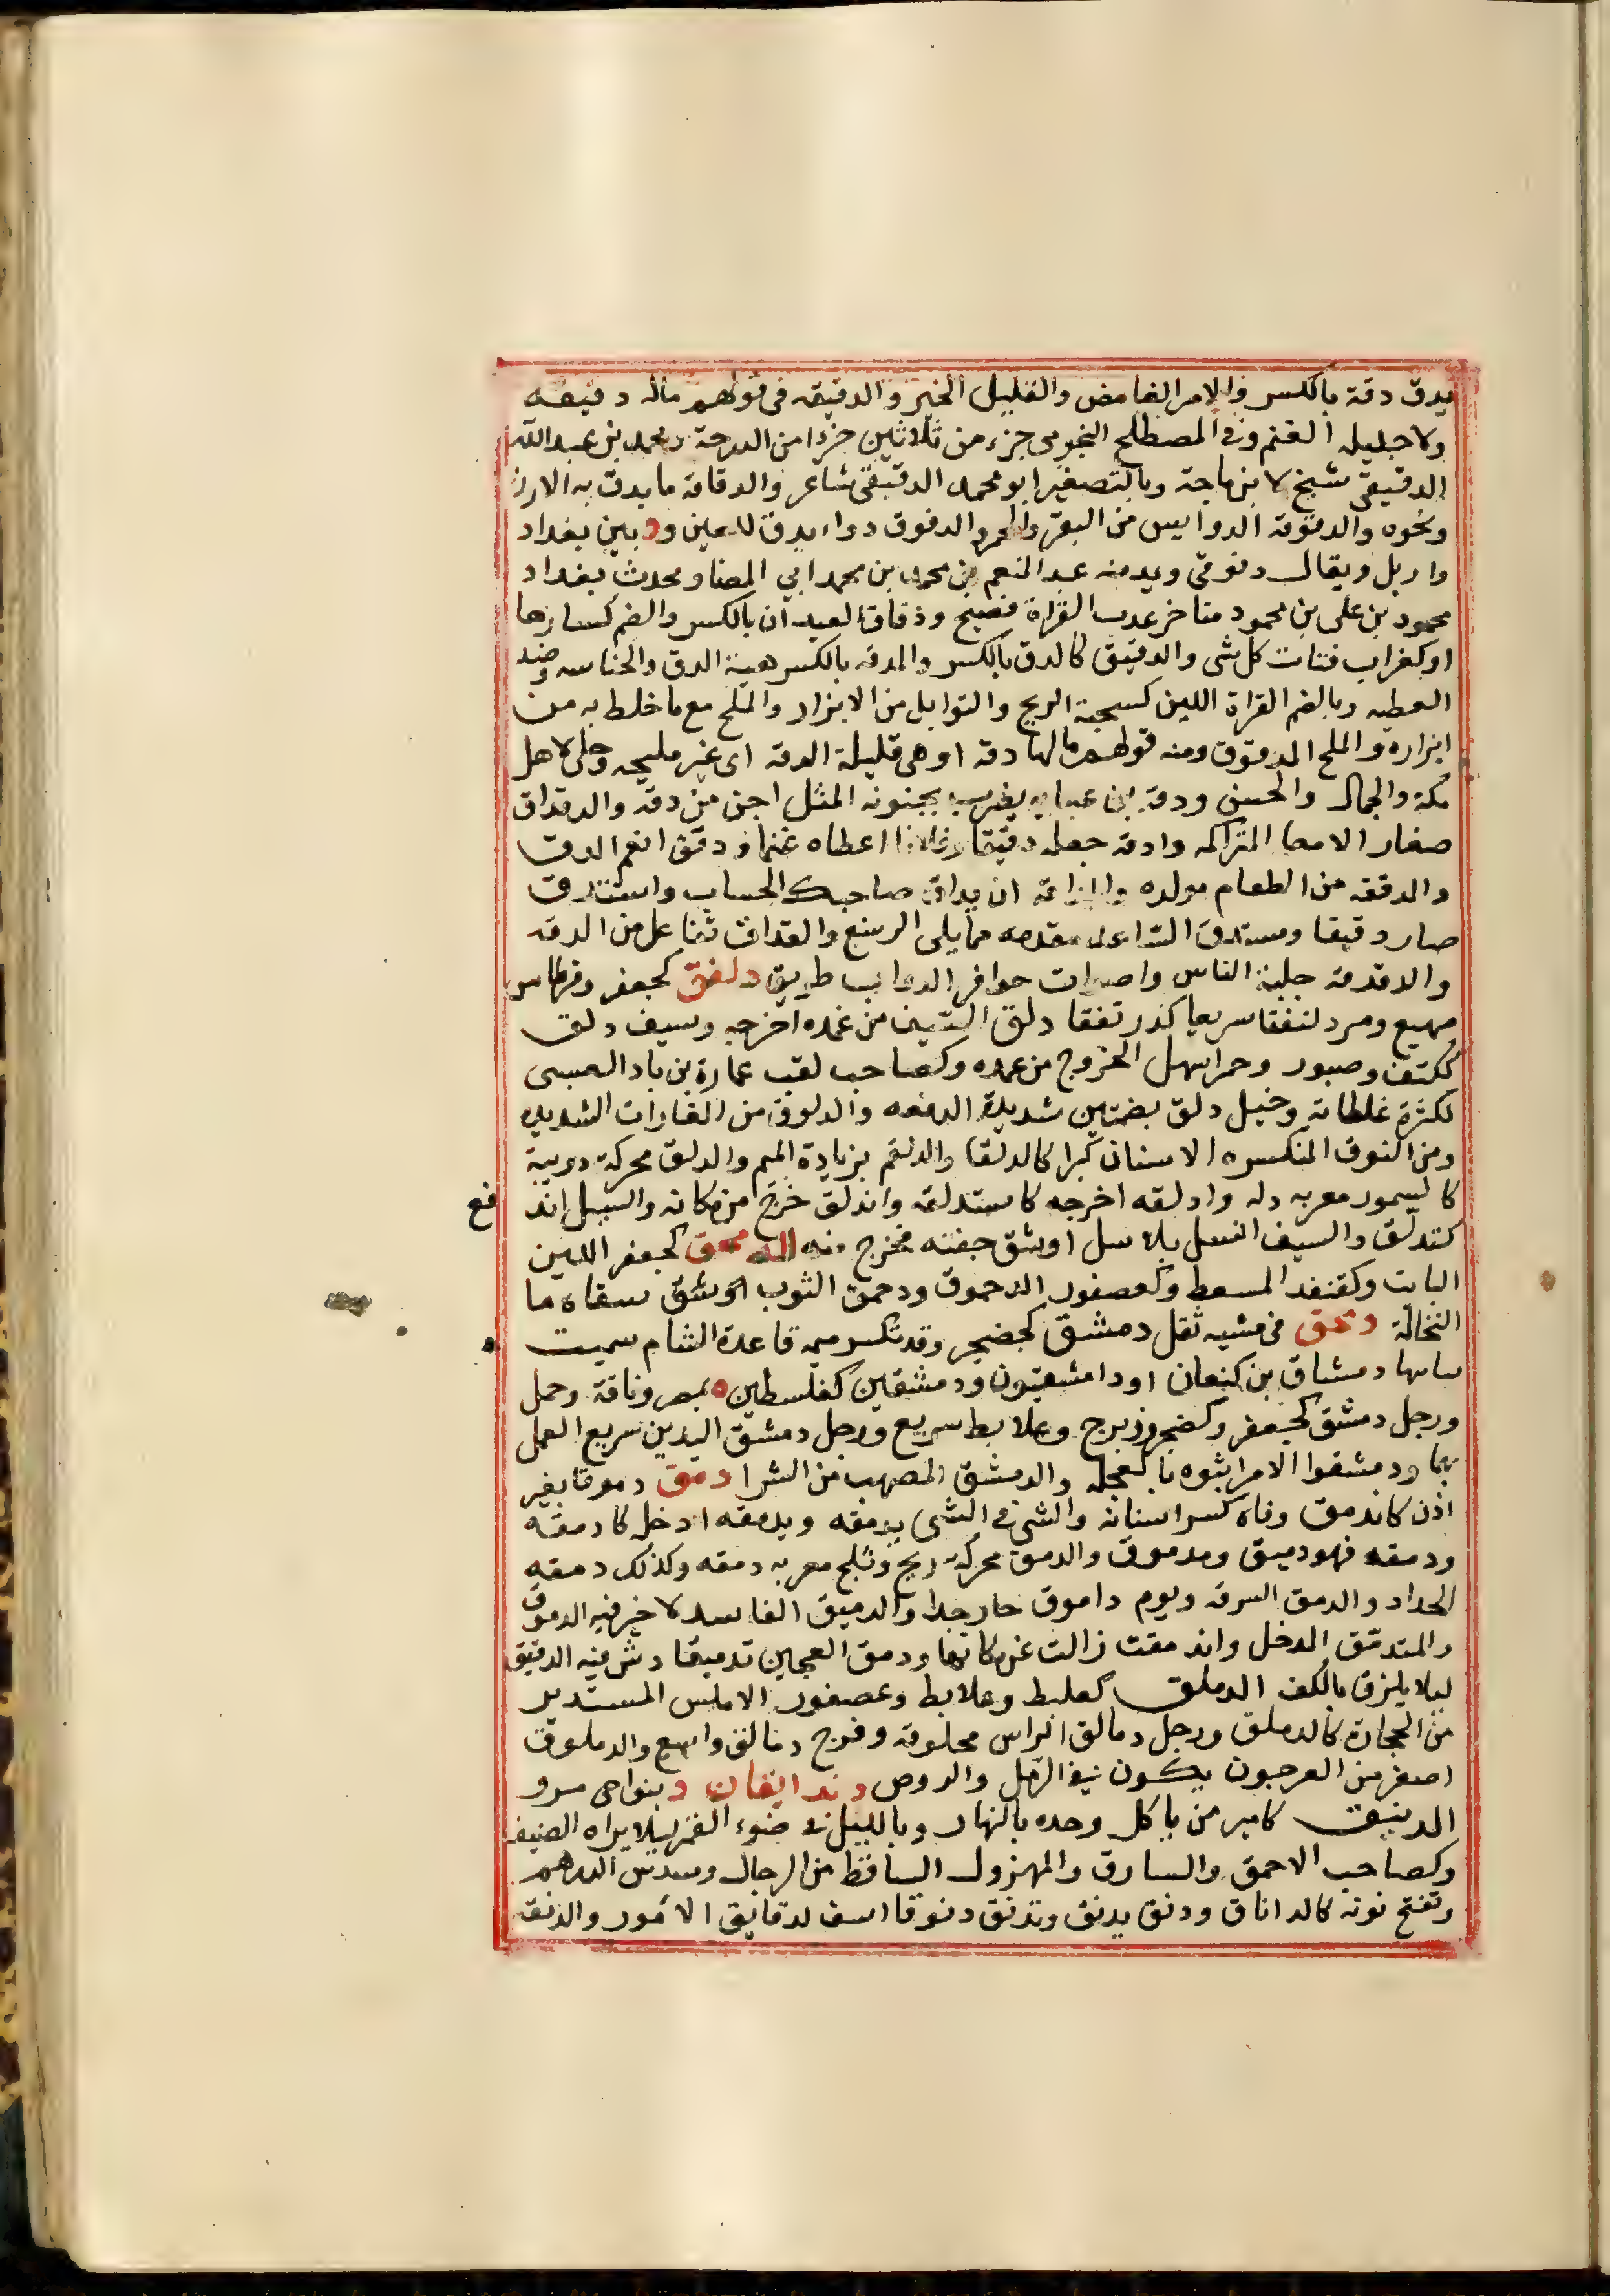 يدق دقة بالكسر والامر الغامض والقليل الخير والدقيقه فى قولهم ماله دقيقه
ولا جليله الغنم وفى المصطلح النجومى جزء من ثلاثين جزءا من الدرجة ومحمد بن عبد الله
الدقيقى شيخ لابن ماجة وبالتصغير ابو محمد الدقيقى شاعر والدقاقة ما يدق به الارز
ونحوه والدقوقة الدوايس من البقر والحمر والدقوق دواء يدق للعين ود بين بغداد
واربل ويقال دقوقى ويد منه عبد المنعم بن محمد بن محمد ابى المضا ومحدث بغداد
محمود بن على بن محمود متاخر عدب القراة فصيح ودقاق العيدان بالكسر والضم كسارها
او كغراب فتات كل شى والدقيق كالدق بالكسر والدقه بالكسر هيئة الدق والخساسه وضد
العطيه وبالضم القراة اللين كسحبة الريح والتوابل من الابزار والملح مع ما خلط به من
ابزاره والملح المدقوق ومنه قولهم مالها دقه او هى قليلة الدقه اى غير مليحه وحلى لاهل
مكة والجمال والحسن ودقة بن عبابه يضرب بجنونه المثل اجن من دقه والدقداق
صغار الامعا المتراكمه وادقه جعله دقيقا وفلانا اعطاه غنما ودقق انعم الدق
والدققه من الطعام مولده والمداقة ان يداق صاحبك الحساب واستدق
صار دقيقا ومستدق الساعد مقدمه مما يلى الرسغ والتداق تفاعل من الدقه
والدقدقة جلبة الناس واصوات حوافر الدواب طريق دلفق كجعفر وقرطاس
مهيع ومر دلنفقا سريعا كدرنفقا دلق السيف من غمده اخرجه وسيف دلق
ككتف وصبور وحمرا سهل الخروج من غمده وكصاحب لقب عمارة بن ياد العبسى
لكثرة غلطاته وخيل دلق بضمتين شديدة الدفعه والدلوق من الغارات الشديده
ومن النوق المنكسره الاسنان كبرا كالدلقا والدلقم بزيادة الميم والدلق محركة دويبة
كالسمور معربه دله وادلقه اخرجه كاستدلقه واندلق خرج من مكانه والسيل اند
كتدلق والسيف انسل بلا سل او شق جفنه فخرج منه الدمحق كجعفر اللبن
البايت وكقنفد المسعط وكعصفور الدحموق ودحمق الثوب او شق سقاه ما
النخالة دمحق فى مشيه ثقل دمشق كحضجر وقد تكسر ميمه قاعدة الشام سميت
ببانيها دمشاق بن كنعان او دامشقيون ودمشقين كفلسطين ه بمصر وناقة وجمل
ورجل دمشق كجعفر وكضجر وزبرج وعلابط سريع ورجل دمشق اليدين سريع العمل
بها ودمشقوا الامر ايتوه بالعجله والدمشق المصهب من الشرا دمق دموقا بغير
اذن كاندمق وفاه كسر اسنانه والشى فى الشى يدمقه ويدمقه ادخله كادمقه
ودمقه فهو دميق ومدموق والدمق محركة ريح وثلج معربه دمقه وكذلك دمقه
الحداد والدمق السرقه ويوم داموق حار جدا والدميق الفاسد لا خير فيه الدموق
والمتدمق المدخل واندمقت زالت عن مكانها ودمق العجين تدميقا دش فيه الدقيق
ليلا يلزق بالكف الدملق كعلبط وعلابط وعصفور الاملس المستدير
من الحجارة كالدملق ورجل دمالق الراس محلوقه وفرج دمالق واسع والدملوق
اصغر من العرجون يكون فى الرمل والروض دندانقان د بنواحى مرو
الدنيق كامير من ياكل وحده بالنهار وبالليل فى ضوء القمر ليلا يراه الضيف
وكصاحب الاحمق والسارق والمهزول الساقط من الرجال وسدس الدرهم
وتفتح نونه كالداناق ودنق يدنق ويدنق دنوقا اسف لدقايق الامور والدنقه